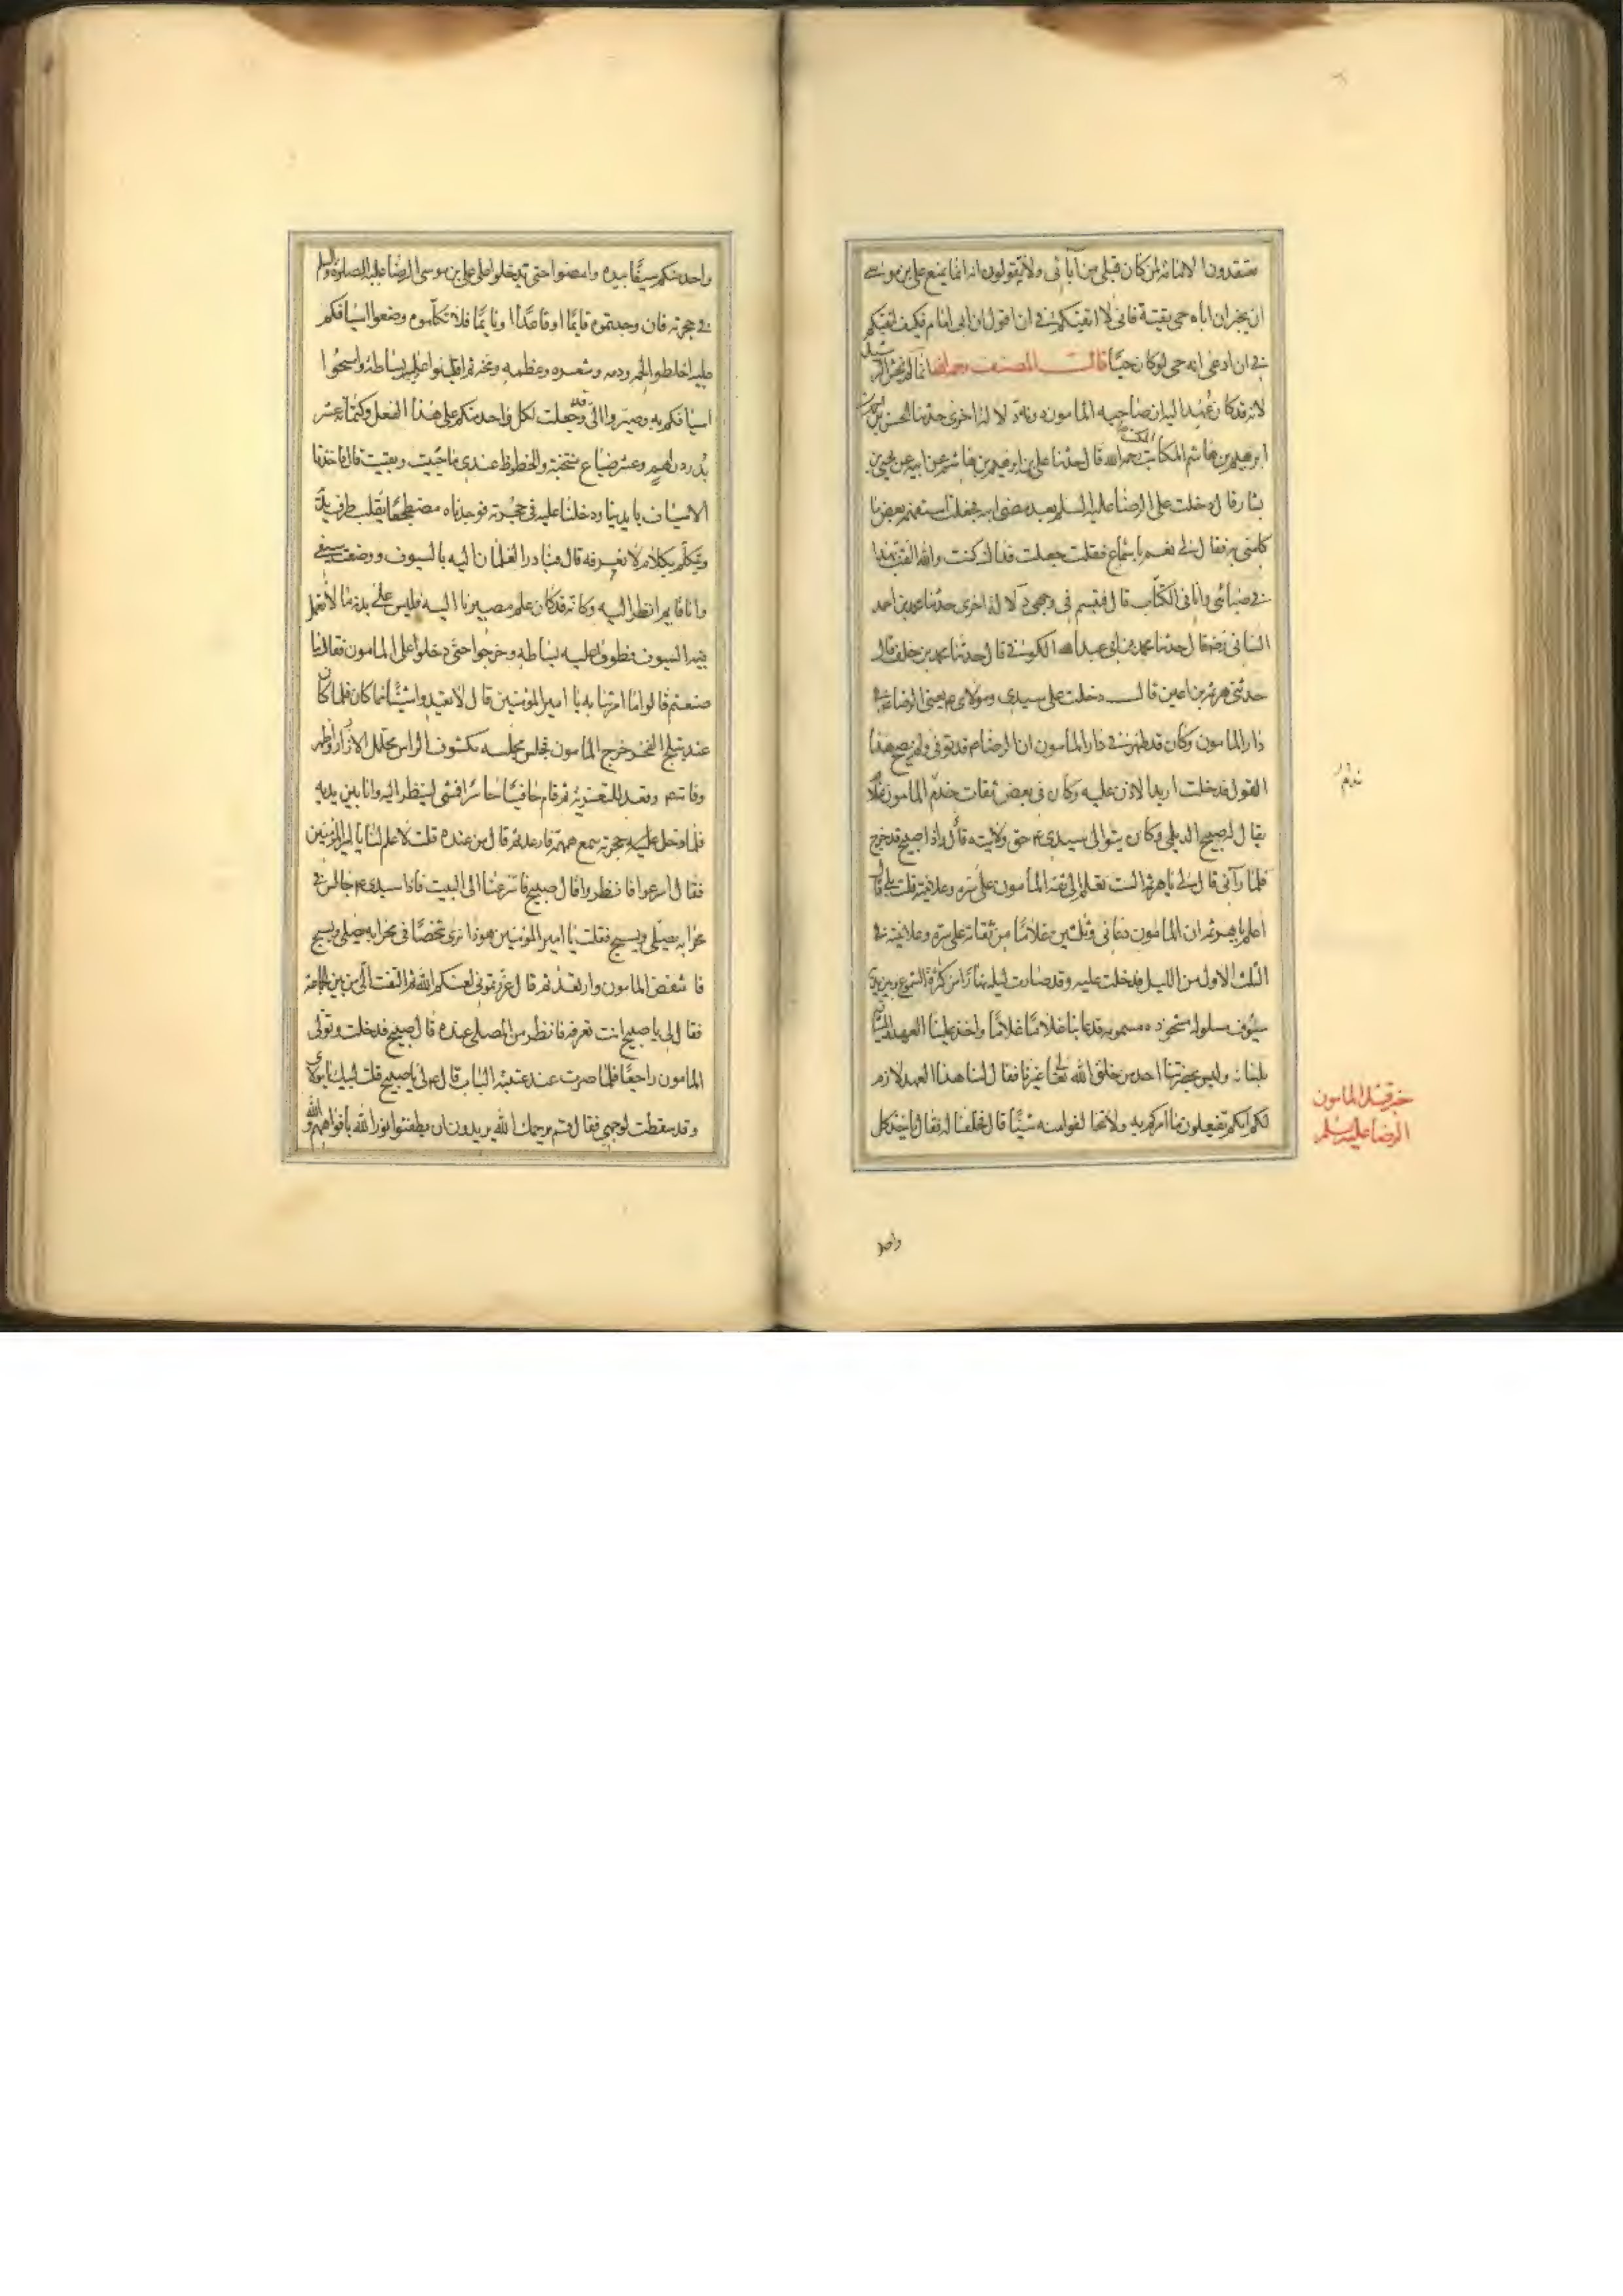 متقدون الامامة لمن كان قبلي من آبائي ولا يقولون انه انما يمنع علي بن موسى
ان يخبر ان اباه حي بقية فاني لا اتقيكم في ان اقول ان ابي امام فكيف اتقيكم
في ان ادعي انه حي لو كان حيا قال المصنف رحمه الله انما لم يخش الرشيد
لانه قد كان عهد اليه ان صاحبه المامون دونه دلالة اخرى حدثنا الحسين بن احمد بن
ابرهيم بن هاشم المكتب رحمه الله قال حدثنا علي بن ابرهيم بن هاشم عن ابيه عن يحيى بن
بشار قال دخلت على الرضا عليه السلم بعد مضي ابيه فجعلت استفهمه بعض ما
كلمني به فقال لي نعم يا سماع فقلت جعلت فداك كنت والله القب بهذا
في صبائي وانا في الكتاب قال فتبسم في وجهي دلالة اخرى حدثنا محمد بن احمد
السناني رضه قال حدثنا محمد بن ابي عبد الله الكوفي قال حدثنا محمد بن خلف قال
حدثني هرثمة بن اعين قال دخلت على سيدي ومولاي يعني الرضا ع في
دار المامون وكان قد ظهر في دار المامون ان الرضا ع قد توفي ولم يصح هذا
القول فدخلت اريد الاذن عليه وكان في بعض ثقات خدم المامون غلام
يقال له صبيح الديلمي وكان يتوالى سيدي ع حق ولايته قال واذا صبيح قد خرج
فلما رآني قال لي يا هرثمة الست تعلم اني ثقة المامون على سره وعلانيته قلت بلى قال
اعلم يا هرثمة ان المامون دعاني وثلثين غلاما من ثقاته على سره وعلانيته في
الثلث الاول من الليل فدخلت عليه وقد صارت ليله نهارا من كثرة الشموع وبين يديه
سيوف مسلولة مشحوذة مسمومة فدعا بنا غلاما غلاما واخذ علينا العهد والميثاق
بلسانه وليس بحضرتنا احد من خلق الله تعالى غيرنا فقال لنا هذا العهد لازم
لكم انكم تفعلون ما آمركم به ولا تخالفوا منه شيئا قال فحلفنا له فقال ياخذ كل
خبر قتل المامون
الرضا عليه السلم
واحد
واحد منكم سيفا بيده وامضوا حتى تدخلوا على علي بن موسى الرضا عليه الصلوة والسلم
في حجرته فان وجدتموه قايما او قاعدا او نايما فلا تكلموه وضعوا اسيافكم
عليه اخلطوا لحمه ودمه وشعره وعظمه ومخه ثم اقلبوا عليه بساطه وامسحوا
اسيافكم به وصيروا الي وقد جعلت لكل واحد منكم على هذا الفعل وكتمانه عشر
بدر دراهم وعشر ضياع منتخبة والحظوظ عندي ما حييت وبقيت قال فاخذنا
الاسياف بايدينا ودخلنا عليه في حجرته فوجدناه مضطجعا يقلب طرف يديه
ويتكلم بكلام لا نعرفه قال فبادر الغلمان اليه بالسيوف ووضعت سيفي
وانا قايم انظر اليه وكانه قد كان علم مصيرنا اليه فلبس على بدنه ما لا تعمل
فيه السيوف فطووا عليه بساطه وخرجوا حتى دخلوا على المامون فقال ما
صنعتم قالوا ما امرتنا به يا امير المؤمنين قال لا تعيدوا شيئا مما كان فلما كان
عند تبلج الفجر خرج المامون فجلس مجلسه مكشوف الراس محلل الازرار واظهر
وفاته وقعد للتعزية ثم قام حافيا حاسرا فمشى لينظر اليه وانا بين يديه
فلما دخل عليه حجرته سمع همهمة فارعد ثم قال من عنده قلت لا علم لنا يا امير المؤمنين
فقال اسرعوا فانظروا قال صبيح فاسرعنا الى البيت فاذا سيدي ع جالس في
محرابه يصلي ويسبح فقلت يا امير المؤمنين هوذا نرى شخصا في محرابه يصلي ويسبح
فانتفض المامون وارتعد ثم قال غررتموني لعنكم الله ثم التفت الي من بين الجماعة
فقال لي يا صبيح انت تعرفه فانظر من المصلي عنده قال صبيح فدخلت وتولى
المامون راجعا فلما صرت عند عتبة الباب قال ع لي يا صبيح قلت لبيك يا مولاي
وقد سقطت لوجهي فقال قم يرحمك الله يريدون ان يطفئوا نور الله بافواههم والله